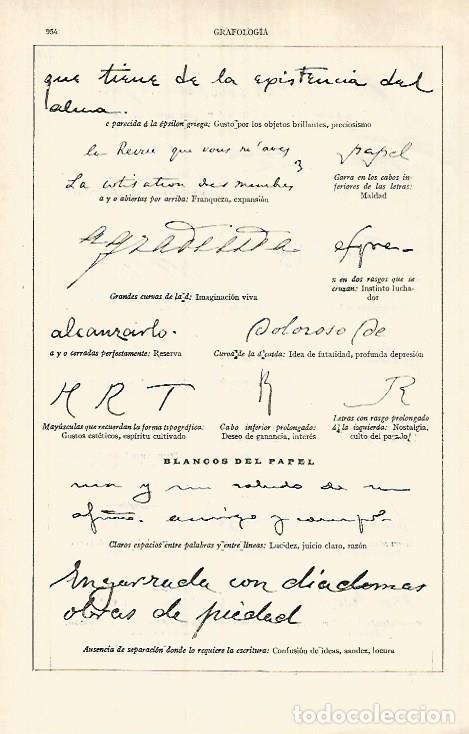 954
GRAFOLOGÍA
que tiene de la epistencia del
alma.
e parecida á la épsilon griega: Gusto por los objetos brillantes, preciosismo
la Revue que vous m'avez
3
papel
La cotisation des membres
Garra en los cabos in-
feriores de las letras:
Maldad
a y o abiertas por arriba: Franqueza, expansión
agradecida
Grandes curvas de la d: Imaginación viva
x en dos rasgos que se
cruzan: Instinto lucha-
dor
alcanzarlo.
Doloroso de
a y o cerradas perfectamente: Reserva
Curva de la d caída: Idea de fatalidad, profunda depresión
H R T
R
R
Mayúsculas que recuerdan la forma tipográfica:
Gustos estéticos, espíritu cultivado
Cabo inferior prolongado:
Deseo de ganancia, interés
Letras con rasgo prolongado
á la izquierda: Nostalgia,
culto del pasado
BLANCOS DEL PAPEL
una y mil saludo de un
afmo. amigo y comp.º
Claros espacios entre palabras y entre líneas: Lucidez, juicio claro, razón
Engarzada con diademas
obras de piedad
Ausencia de separación donde lo requiere la escritura: Confusión de ideas, sandez, locura
todocoleccion